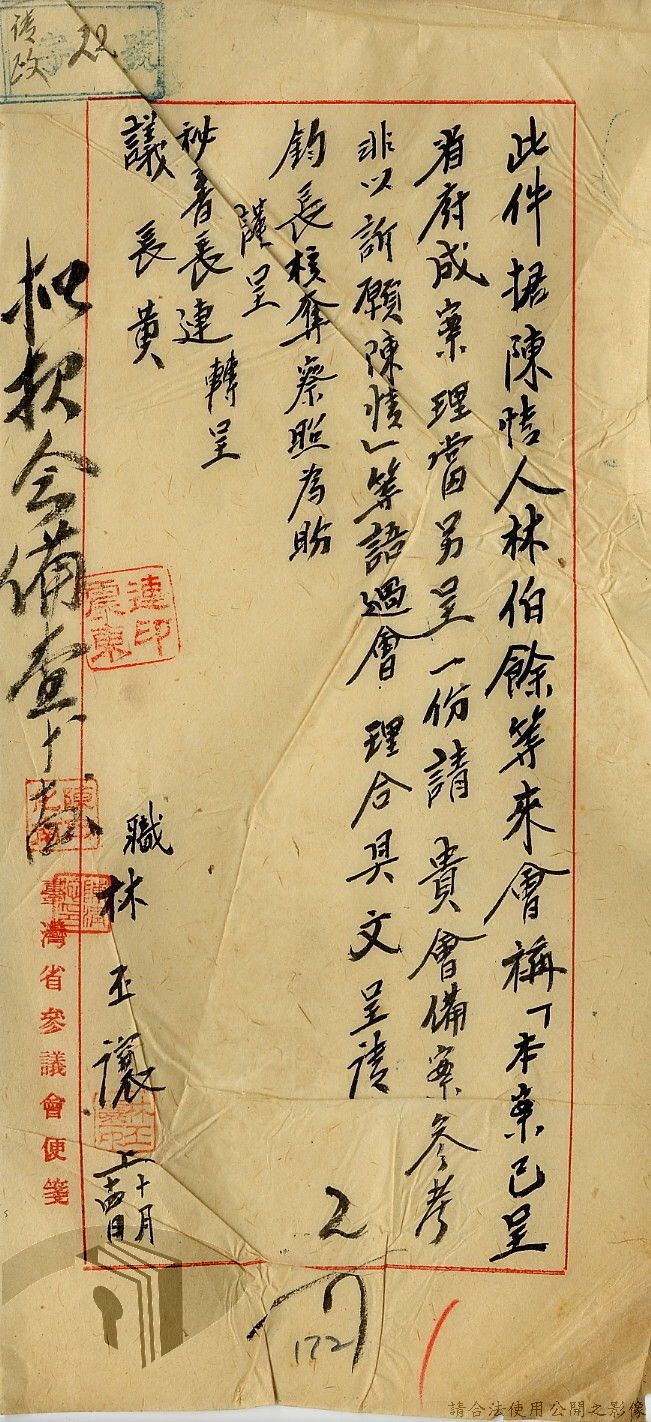 請政字 22 號
此件据陳情人林伯餘等來會稱「本案已呈
省府成案理當另呈一份請 貴會備案參考
非以訴願陳情」等語過會 理合具文呈請
鈞長核奪察照為盼
謹呈
秘書長連 轉呈
議長黃
職林丕讓
十月
連震東印
存會備查
臺灣省參議會便箋
2
172
請合法使用公開之影像